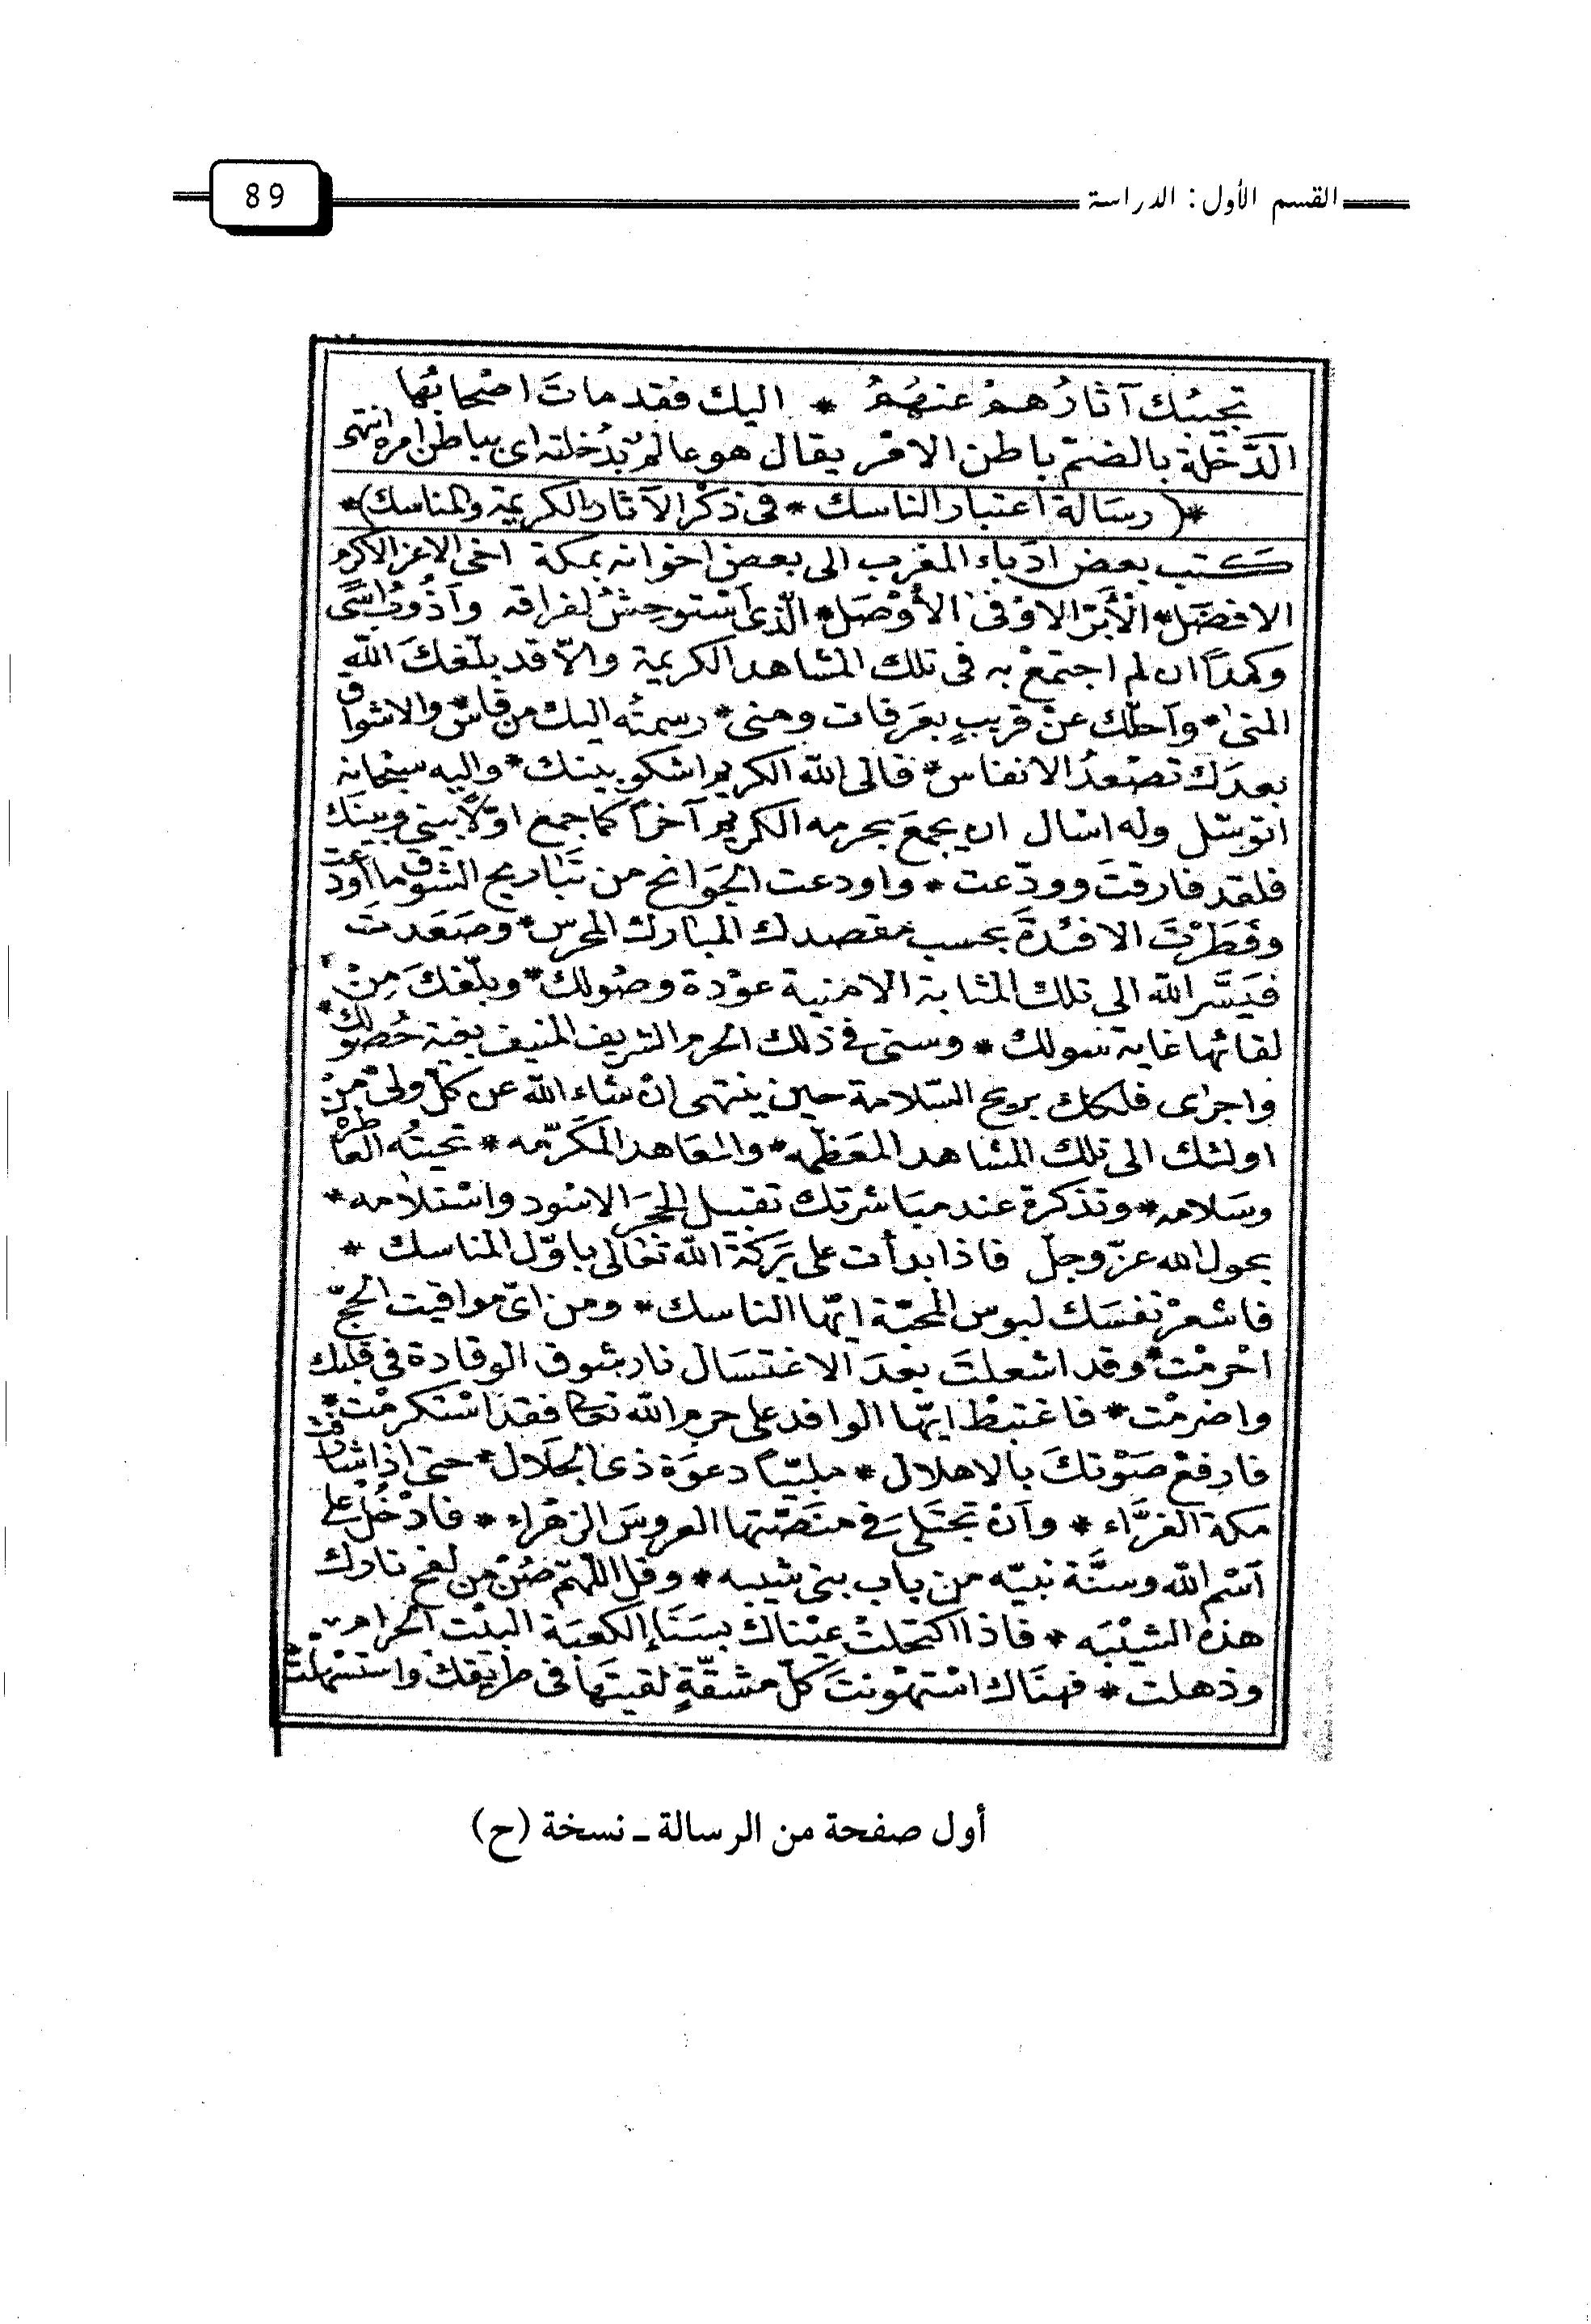 القسم الأول: الدراسة
89
تجيئك آثارُهمْ عنهُمُ * اليك فقد ماتَ اصْحابُها
الدَّخلة بالضم باطن الامر يقال هو عالم بدُخلته اى بباطن امره انتهى
*( رسَالة اعتبار الناسك * فى ذكْر الآثار الكريمة والمناسك)*
كَتب بعض ادَباء المغرب الى بعض اخوانه بمكة اخى الاعز الاكرم
الافضَل * الأبَرّ الاوْفى الأوْصَل * الّذى اَسْتوحِشُ لفراقه وآذُوبُ اسًى
وكمدًا ان لم اجتمعْ به فى تلك المشاهد الكريمة والّا قد بلّغكَ اللّه
المنى * واَحلّك عنْ قريبٍ بعَرفات ومنى * رسمتُه اليك من فاس * والاشواق
بعدَك تصَعدُ الانفاس * فالى اللّه الكريم اشكو بينك * واليه سبحانه
اتوسّل وله اسْال ان يجمعَ بحرمه الكريم آخرًا كما جمع اوّلًا بينى وبينَك
فلقد فارقتَ وودّعت * واودعت الجوَانح من تبَاريح الشوق ما أودَعت
وفَطَرْتَ الافئدةَ بحسب مقصدك المبارك المحرس * وصَعَدتَ
فيَسَّر اللّه الى تلك المثابة الامنية عوْدة وصُولك * وبلّغكَ مِنْ *
لقائها غاية سولك * وسنى فى ذلك الحرم الشريف المنيف بغية حُصولك *
واجرى فلكك بريح السّلامة حين ينتهى انْ شاء اللّه عن كلّ ولىّ منْ
اولئك الى تلك المشاهد المعَظّمه * والمعَاهد المكَرّمه * تحيتُه العَاطرهْ
وسَلامه * وتذكرة عند مبَاشرتك تقبيل الحجَر الاسْود واسْتلامه *
بحول الله عزّ وجلّ فاذا بدأت على بَركَةِ اللّه تعَالى باوّل المناسك *
فاشعرْ نفسَك لبوس المحبّة ايّها الناسك * ومن اىّ مواقيت الحجّ
احْرمْت * وقد اشعلتَ بعْدَ الاغتسَال نار شوق الوقادة فى قلبك
واضرمْت * فاغتبطْ ايّها الوافد على حرم اللّه تعالى فقد اسْتكرمْت *
فارفعْ صَوْتكَ بالاهلال * ملبّيًا دعوَة ذى الجَلال * حتى اذا شارفت
مكة الغرَّاء * وآنْ تجتَلى فى منصَّتها العروسَ الزهْراء * فادْخُل على
اَسْم اللّه وسنَّة نبيّه من باب بنى شيبه * وقل اللّهمّ صُنْ من لفح نارك
هذه الشيْبَه * فاذا اكتحَلتْ عيْناك بسَنَاءِ الكعبَة البيْت الحرام
وذهلت * فهنَاك اسْتهْونتَ كلّ مشقّةٍ لقيتَها فى طريقك واستسْهلتْ
أول صفحة من الرسالة ـ نسخة (ح)